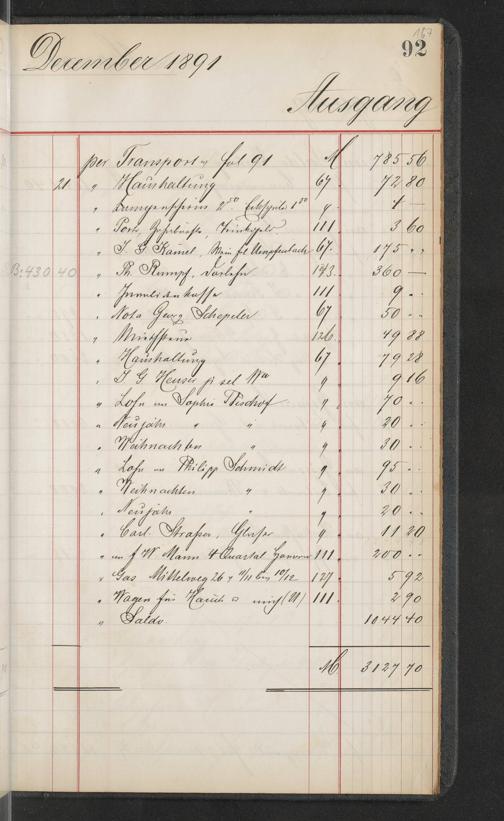 167
92
December 1891
Ausgang
per Transport v fol 91 M 785 56
21 " Haushaltung 67 72 80
" 2 50 1 50 " 4 —
" Porto, Trinkgeld 111 3 60
" J. G Kamel, 67 175 "
B: 430 40 " Ph. Rumpf, Darlehn 143 360 —
" Invalidenkasse 111 9 "
" Nota Georg Schepeler 67 50 "
" Miethsteuer 126 49 88
" Haushaltung 67 79 28
" J G Heuser sel Wwe " 9 16
" Lohn an Sophie Bischof " 70 "
" Neujahr " " " 20 "
" Weihnachten " " 30 "
" Lohn an Philipp Schmidt " 95 "
" Weihnachten " " 30 "
" Neujahr " " 20 "
" Carl Strasser, Glaser " 11 20
" an f W Mann 4 Quartal 111 200 "
" Gas Mittelweg 26 v 11/11 bis 10/12 127 5 92
" Wagen für mich (21) 111 2 90
" Saldo 1044 40
M 3127 70